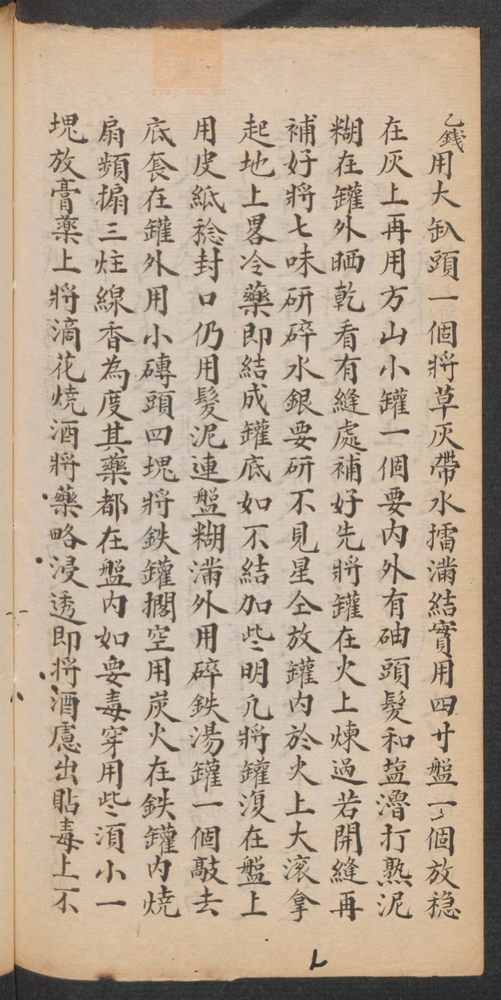 乙錢用大缸頭一個將草灰帶水擂滿結實用四寸盤一個放稳
在灰上再用方山小罐一個要内外有砷頭髮和塩滷打熟泥
糊在罐外晒乾看有縫處補好先將罐在火上煉過若開縫再
補好將七味研碎水銀要研不見星仝放罐内於火上大滚拿
起地上畧冷藥即結成罐底如不結加些明凢將罐復在盤上
用皮紙捻封口仍用髮泥連盤糊滿外用碎鉄湯罐一個敲去
底套在罐外用小磚頭四塊將鉄罐擱空用炭火在鉄罐内燒
扇頻搧三炷線香為度其藥都在盤内如要毒穿用些須小一
塊放膏藥上將滴花燒酒將藥略浸透即將酒慮出貼毒上不